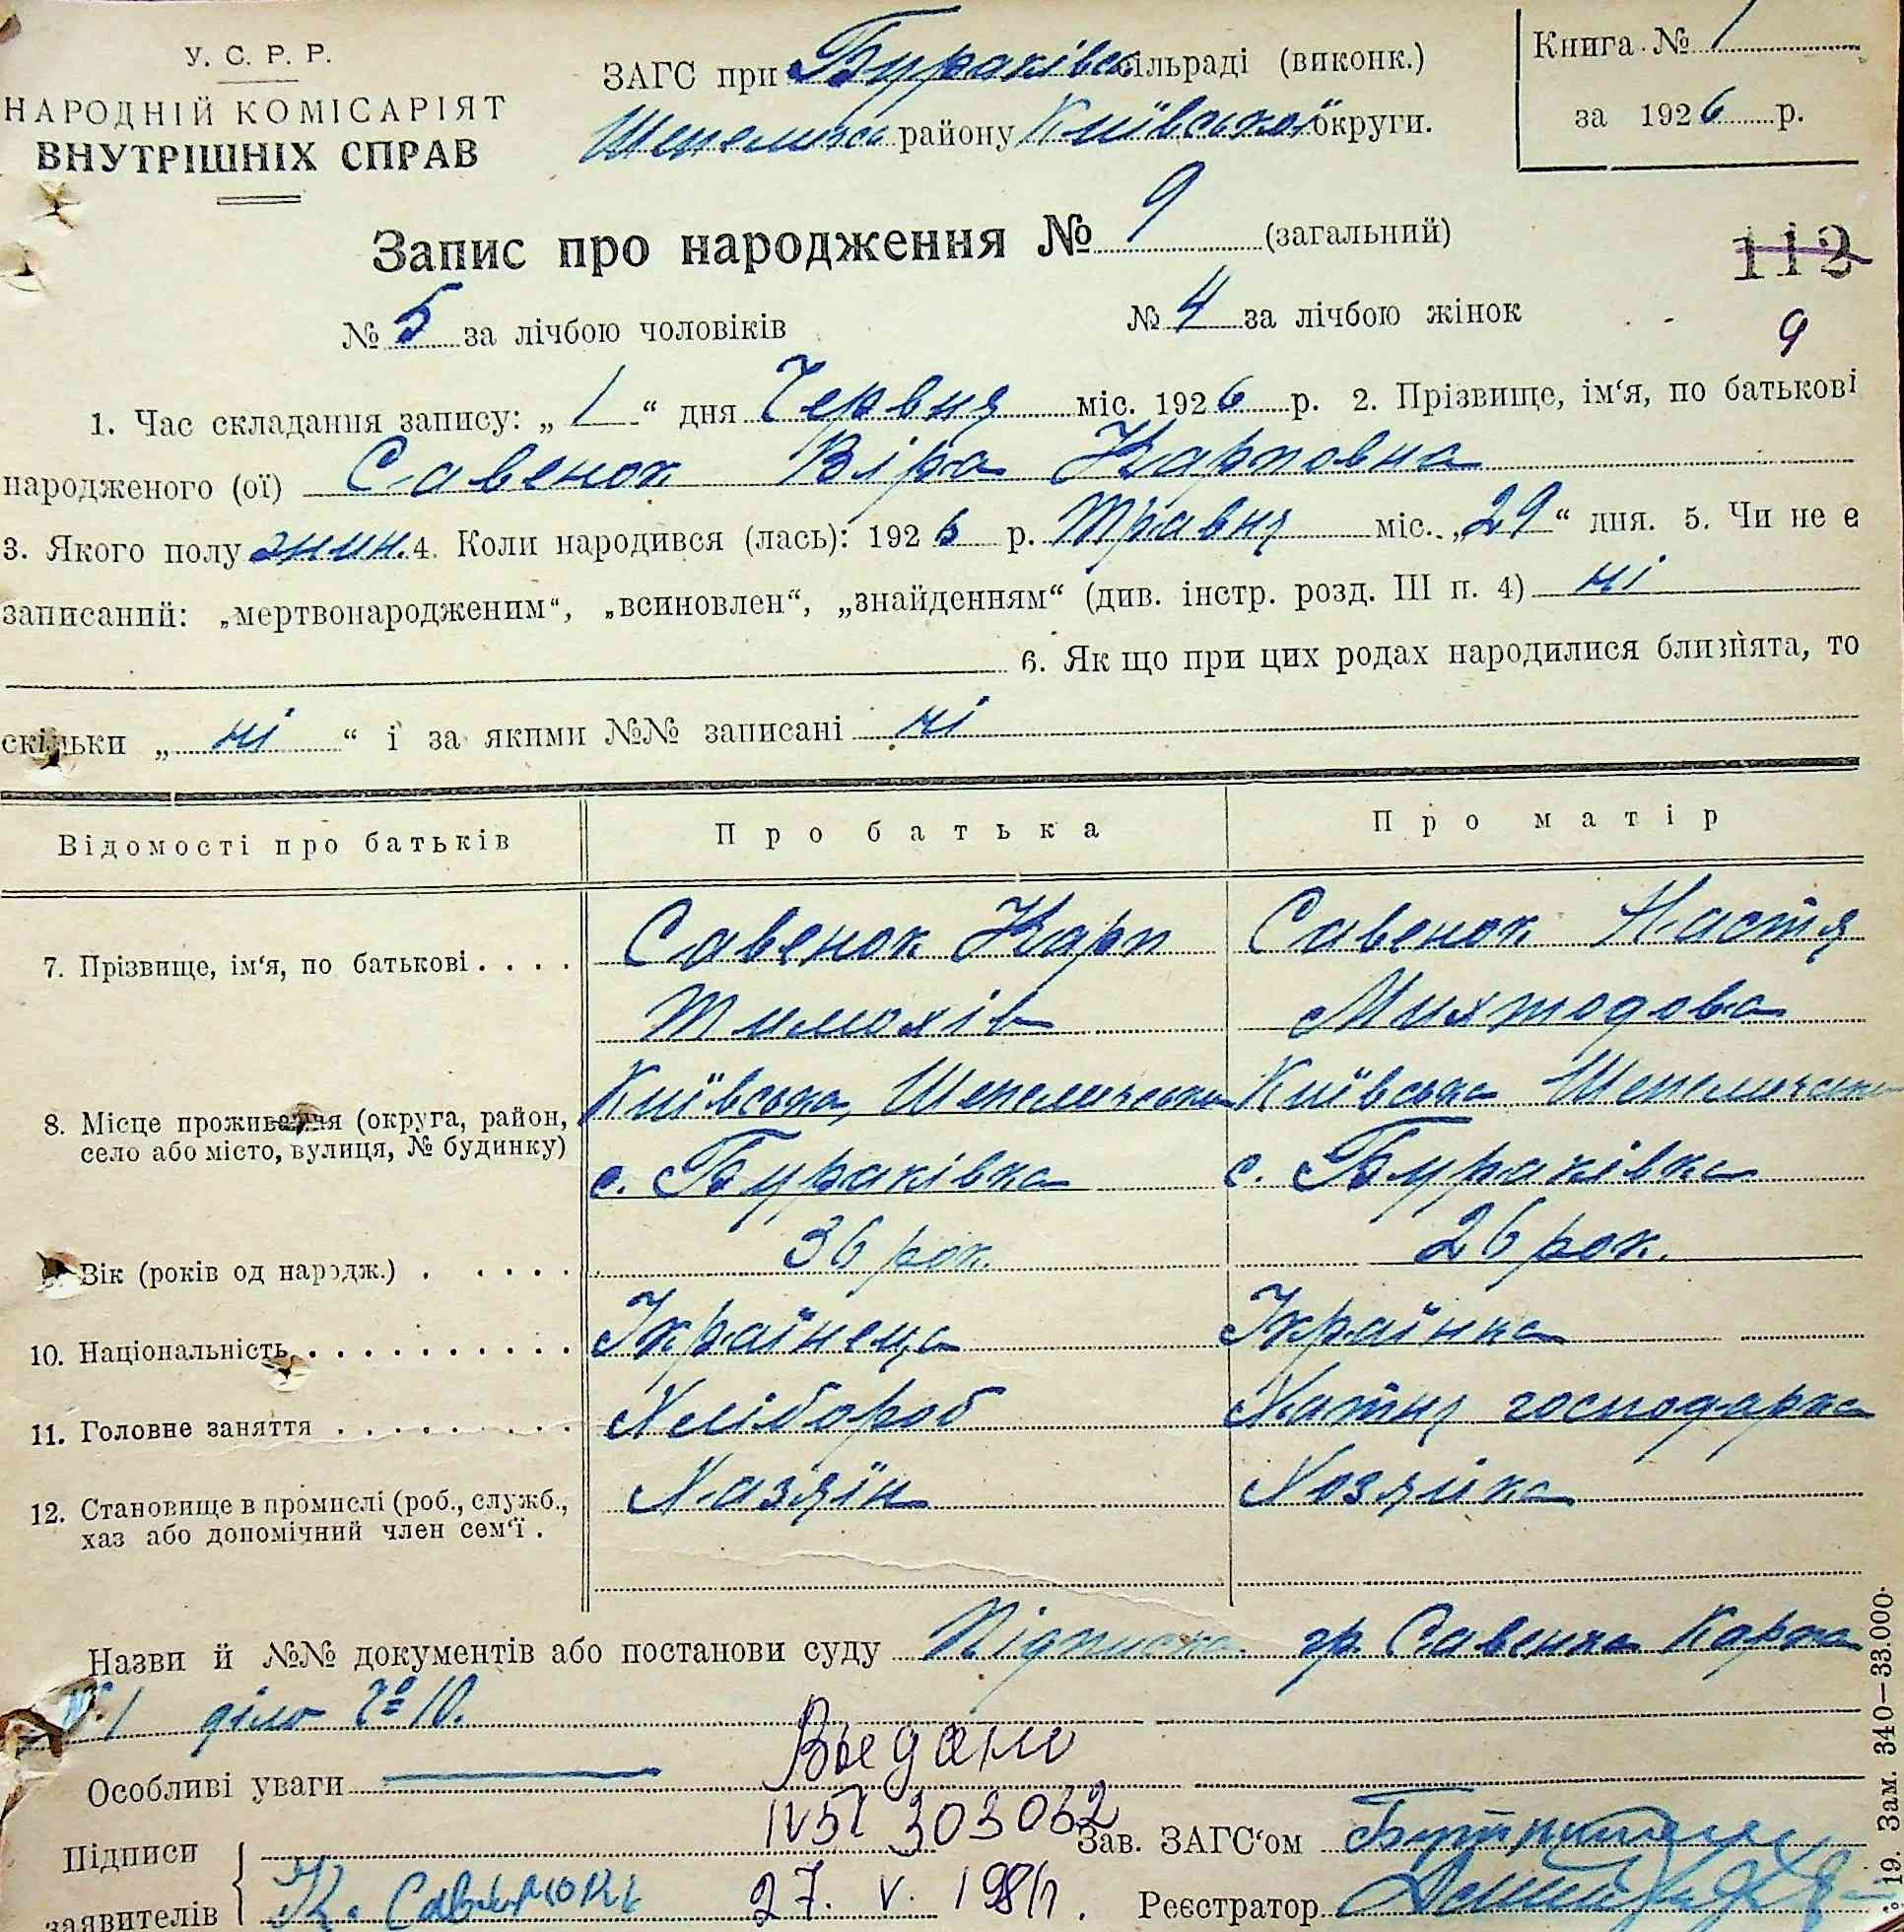 У. С. Р. Р.
НАРОДНІЙ КОМІСАРІЯТ
ВНУТРІШНІХ СПРАВ
ЗАГС при Бураківск. сільраді (виконк.)
Шепелич. району Київської округи.
Книга № 1
за 1926 р.
Запис про народження № 9 (загальний)
112
№ 5 за лічбою чоловіків № 4 за лічбою жінок
9
1. Час складання запису: „ 1 “ дня Червня міс. 1926 р. 2. Прізвище, ім‘я, по батькові
народженого (ої) Савенок Віра Карповна
3. Якого полу жин. 4. Коли народився (лась): 1926 р. Травня міс. „29“ дня. 5. Чи не є
записаний: „мертвонародженим“, „всиновлен“, „знайденням“ (див. інстр. розд. III п. 4) ні
6. Як що при цих родах народилися близнята, то
скільки „ ні “ і за якими №№ записані ні
Відомості про батьків Про батька Про матір
7. Прізвище, ім‘я, по батькові . . . . Савенок Карп Савенок Настя
Тимохів Михтодова
Київська, Шепелическа Київська Шепелическа
8. Місце проживання (округа, район,
село або місто, вулиця, № будинку) с. Бураківка с. Бураківка
Вік (років од народж.) . . . . . 36 рок. 26 рок.
10. Національність . . . . . . . . . . . Українець Українка
11. Головне заняття . . . . . . . . . Хлібороб Хатня господарка
12. Становище в промислі (роб., служб., Хазяїн Хозяйка
хаз або допомічний член сем‘ї .
Назви й №№ документів або постанови суду Підписка гр. Савенка Карпа
№ 1 діло № 10.
Особливі уваги
IV БІ 303032
Підписи
заявителів
К. Савенок
27. V. 198
Зав. ЗАГС‘ом
Реєстратор
19. Зам. 340—33.000.